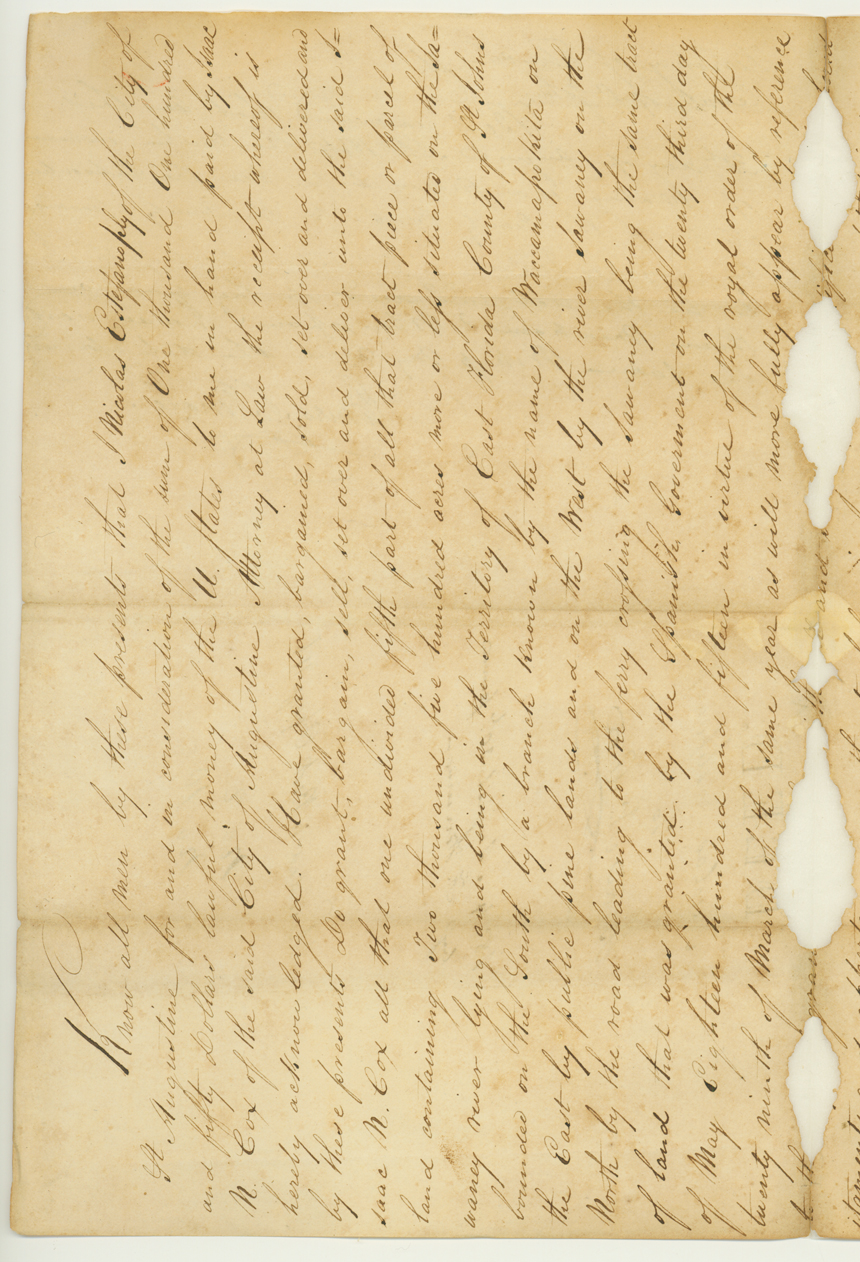 Know all men by these presents that I Nicolas Estefanoply of the City of
St Augustine for and in consideration of the sum of One thousand One hundred
and fifty Dollars lawful money of the U. States to me in hand paid by Isaac
N. Cox of the said City of Augustine Attorney at Law the receipt whereof is
hereby acknowledged. Have granted, bargained, sold, set over and delivered and
by these presents Do grant, bargain, sell, set over and deliver unto the said I=
saac N. Cox all that one undivided fifth part of all that tract piece or parcel of
land containing Two thousand five hundred acres more or less situated on the Sa=
waney river lying and being in the Territory of East Florida County of St Johns
bounded on the South by a branch known by the name of Waccamapohita on
the East by public pine lands and on the West by the river Sawaney on the
North by the road leading to the ferry crossing the Sawaney being the same tract
of land that was granted by the Spanish Goverment on the twenty third day
of May Eighteen hundred and fifteen in virtue of the royal order of the
twenty ninth of March of the same year as will more fully appear by reference
to th gran and